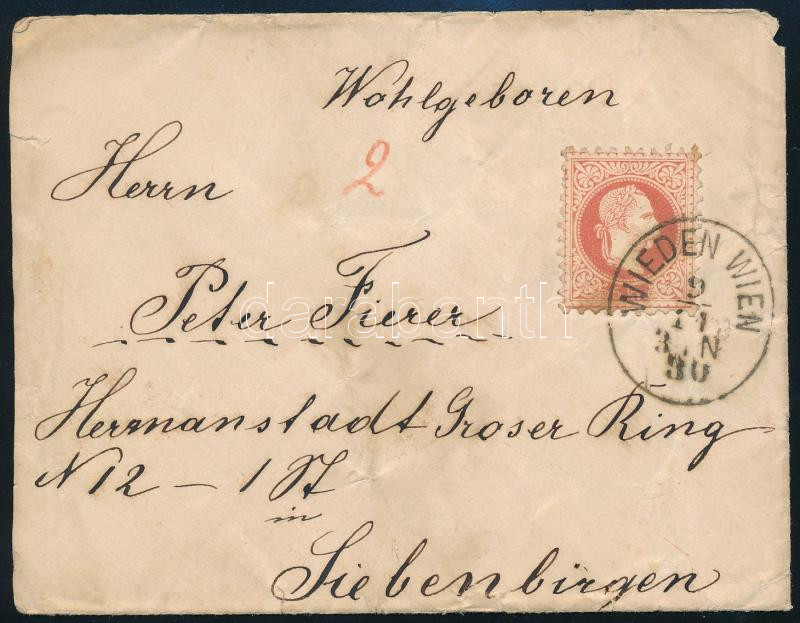 Wohlgeboren
2
Herrn
Peter Fierer
Hermanstadt Groser Ring
N 12 – 1 St
in
Siebenbürgen
WIEDEN WIEN
9
11
3 N
80
darabanth